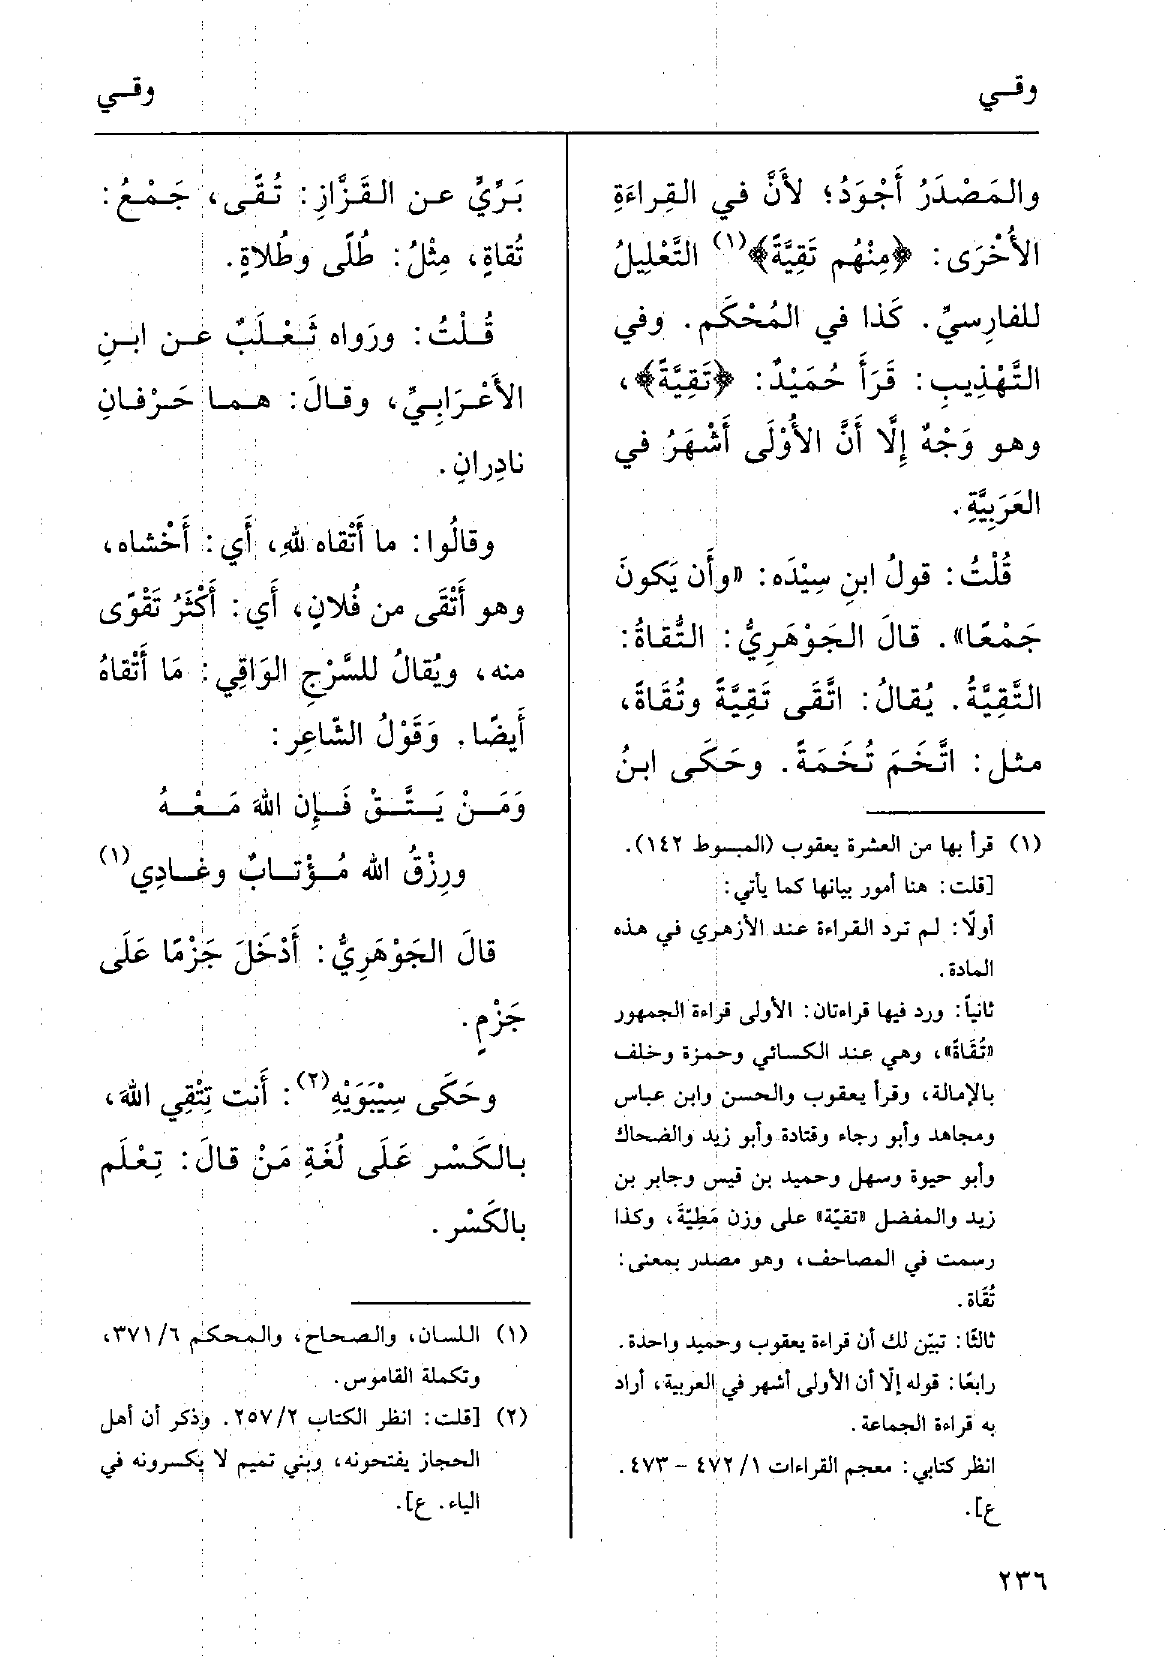 وقي
وقي
والمَصْدَرُ أَجْوَدُ؛ لأَنَّ في القِراءَةِ
الأُخْرَى: ﴿مِنْهُم تَقِيَّةً﴾(١) التَّعْلِيلُ
للفارِسيِّ. كَذا في المُحْكَم. وفي
التَّهْذِيبِ: قَرَأَ حُمَيْدٌ: ﴿تَقِيَّةً﴾،
وهو وَجْهٌ إِلَّا أَنَّ الأُوْلَى أَشْهَرُ في
العَرَبِيَّةِ.
قُلْتُ: قولُ ابنِ سِيْدَه: «وأَن يَكونَ
جَمْعًا». قالَ الجَوْهَرِيُّ: التُّقاةُ:
التَّقِيَّةُ. يُقالُ: اتَّقَى تَقِيَّةً وتُقَاةً،
مثل: اتَّخَمَ تُخَمَةً. وحَكَى ابنُ
(١) قرأ بها من العشرة يعقوب (المبسوط ١٤٢).
[قلت: هنا أمور بيانها كما يأتي:
أولًا: لم ترد القراءة عند الأزهري في هذه
المادة.
ثانياً: ورد فيها قراءتان: الأولى قراءة الجمهور
«تُقَاةً»، وهي عند الكسائي وحمزة وخلف
بالإمالة، وقرأ يعقوب والحسن وابن عباس
ومجاهد وأبو رجاء وقتادة وأبو زيد والضحاك
وأبو حيوة وسهل وحميد بن قيس وجابر بن
زيد والمفضل «تقيّة» على وزن مَطِيّةً، وكذا
رسمت في المصاحف، وهو مصدر بمعنى:
تُقَاة.
ثالثًا: تبيّن لك أن قراءة يعقوب وحميد واحدة.
رابعًا: قوله إلّا أن الأولى أشهر في العربية، أراد
به قراءة الجماعة.
انظر كتابي: معجم القراءات ١/ ٤٧٢ – ٤٧٣.
ع].
بَرِّيٍّ عن القَزَّازِ: تُقًى، جَمْعُ:
تُقاةٍ، مِثْلُ: طُلًى وطُلاةٍ.
قُلْتُ: ورَواه ثَعْلَبٌ عن ابنِ
الأَعْرَابِيِّ، وقالَ: هما حَرْفانِ
نادِرانِ.
وقالُوا: ما أَتْقاه للهِ، أَي: أَخْشاه،
وهو أَتْقَى من فُلانٍ، أَي: أَكْثَرُ تَقْوًى
منه، ويُقالُ للسَّرْجِ الوَاقِي: مَا أَتْقاهُ
أَيضًا. وَقَوْلُ الشّاعِر:
وَمَنْ يَتَّقْ فَإِن اللهَ مَعْهُ
ورِزْقُ الله مُؤْتابٌ وغادِي(١)
قالَ الجَوْهَرِيُّ: أَدْخَلَ جَزْمًا عَلَى
جَزْمٍ.
وحَكَى سِيْبَوَيْهِ(٢): أَنت تِتْقِي اللهَ،
بالكَسْر عَلَى لُغَةِ مَنْ قالَ: تِعْلَم
بالكَسْر.
(١) اللسان، والصحاح، والمحكم ٦/ ٣٧١،
وتكملة القاموس.
(٢) [قلت: انظر الكتاب ٢/ ٢٥٧. وذكر أن أهل
الحجاز يفتحونه، وبني تميم لا يكسرونه في
الياء. ع].
٢٣٦